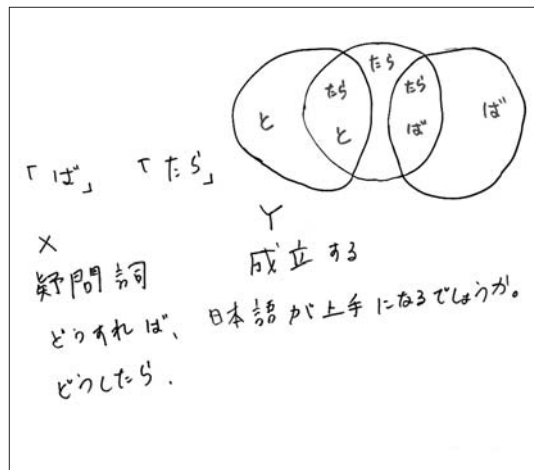 たら
たら たら
と と ば ば
「ば」 「たら」
X Y
疑問詞 成立する
どうすれば、日本語が上手になるでしょうか。
どうしたら、